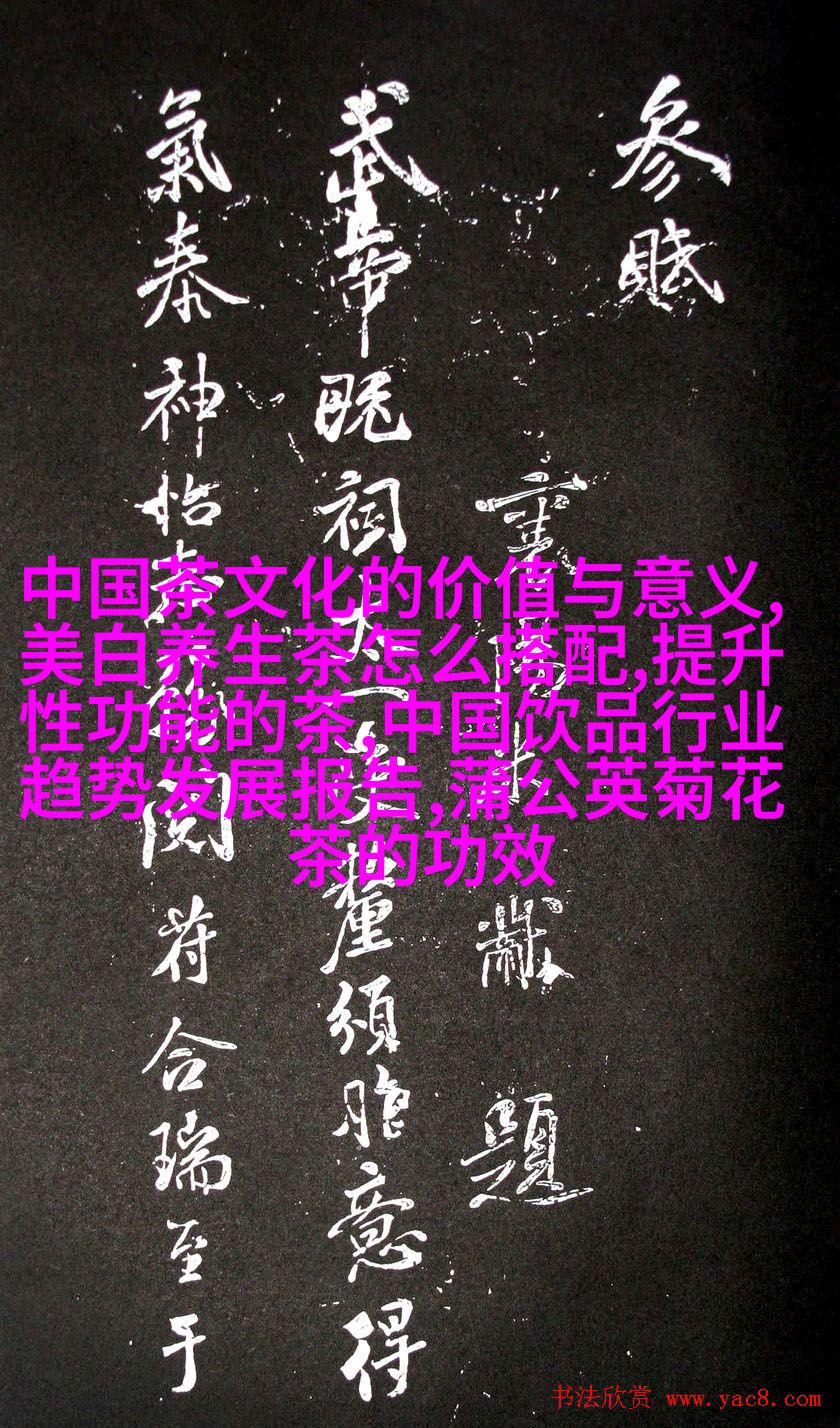 參賦
題
武帝既祠太一受釐頒胙意得
氣泰神怡閱符合瑞至于
中国茶文化的价值与意义,
美白养生茶怎么搭配,提升
性功能的茶,中国饮品行业
趋势发展报告,蒲公英菊花
茶的功效
书法欣赏 www.yac8.com